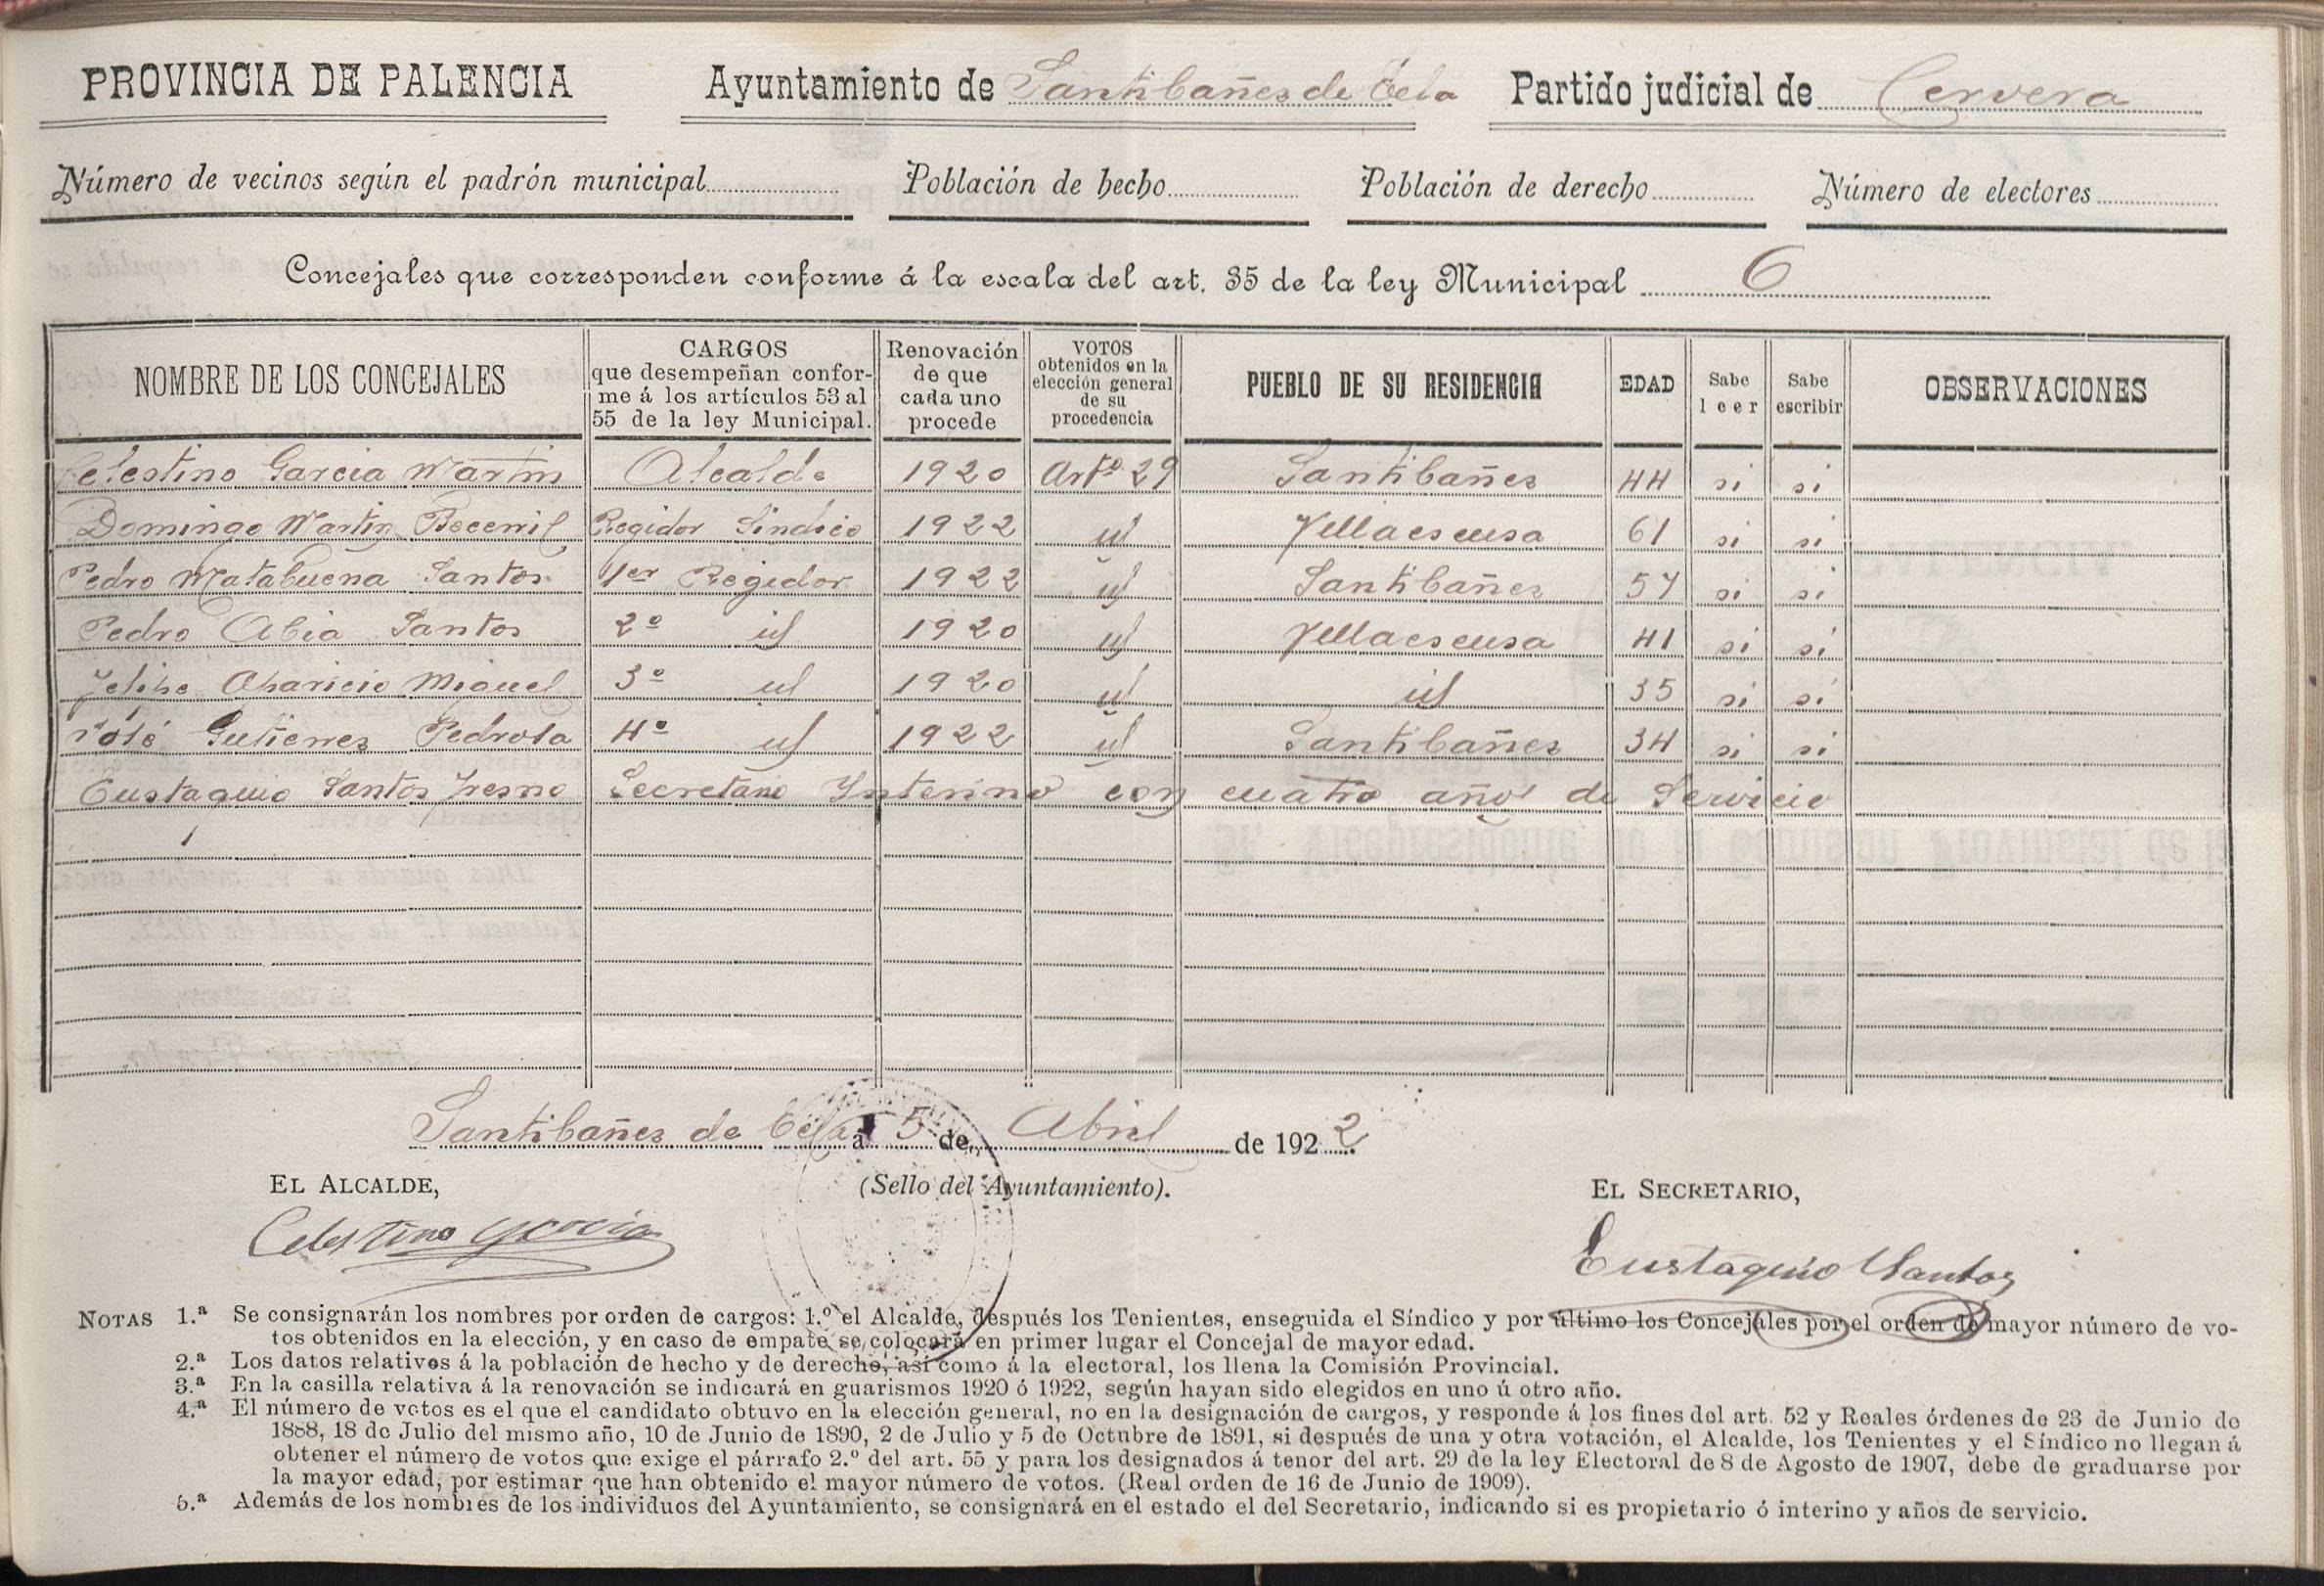 PROVINCIA DE PALENCIA Ayuntamiento de Santibañes de Ecla Partido judicial de Cervera
Número de vecinos según el padrón municipal Población de hecho Población de derecho Número de electores
Concejales que corresponden conforme á la escala del art. 35 de la ley Municipal 6
NOMBRE DE LOS CONCEJALES
CARGOS
que desempeñan confor-
me á los artículos 53 al
55 de la ley Municipal.
Renovación
de que
cada uno
procede
VOTOS
obtenidos en la
elección general
de su
procedencia
PUEBLO DE SU RESIDENCIA
EDAD
Sabe
leer
Sabe
escribir
OBSERVACIONES
Celestino Garcia Martin Alcalde 1920 Artº 29 Santibañes 44 si si
Domingo Martin Becerril Regidor Sindico 1922 id Villaescusa 61 si si
Pedro Matabuena Santos 1er Regidor 1922 id Santibañes 57 si si
Pedro Abia Santos 2º id 1920 id Villaescusa 41 si si
Felipe Aparicio Miguel 3º id 1920 id id 35 si si
José Gutierres Pedrosa 4º id 1922 id Santibañes 34 si si
Eustaquio Santos Fresno Secretario Interino con cuatro años de Servicio
Santibañes de Ecla á 5 de Abril de 1922.
EL ALCALDE, (Sello del Ayuntamiento). EL SECRETARIO,
Celestino Garcia Eustaquio Santos
NOTAS 1.ª Se consignarán los nombres por orden de cargos: 1.º el Alcalde, después los Tenientes, enseguida el Síndico y por último los Concejales por el orden de mayor número de vo-
tos obtenidos en la elección, y en caso de empate se colocará en primer lugar el Concejal de mayor edad.
2.ª Los datos relativos á la población de hecho y de derecho, así como á la electoral, los llena la Comisión Provincial.
3.ª En la casilla relativa á la renovación se indicará en guarismos 1920 ó 1922, según hayan sido elegidos en uno ú otro año.
4.ª El número de votos es el que el candidato obtuvo en la elección general, no en la designación de cargos, y responde á los fines del art. 52 y Reales órdenes de 23 de Junio de
1888, 18 de Julio del mismo año, 10 de Junio de 1890, 2 de Julio y 5 de Octubre de 1891, si después de una y otra votación, el Alcalde, los Tenientes y el Síndico no llegan á
obtener el número de votos que exige el párrafo 2.º del art. 55 y para los designados á tenor del art. 29 de la ley Electoral de 8 de Agosto de 1907, debe de graduarse por
la mayor edad, por estimar que han obtenido el mayor número de votos. (Real orden de 16 de Junio de 1909).
5.ª Además de los nombres de los individuos del Ayuntamiento, se consignará en el estado el del Secretario, indicando si es propietario ó interino y años de servicio.